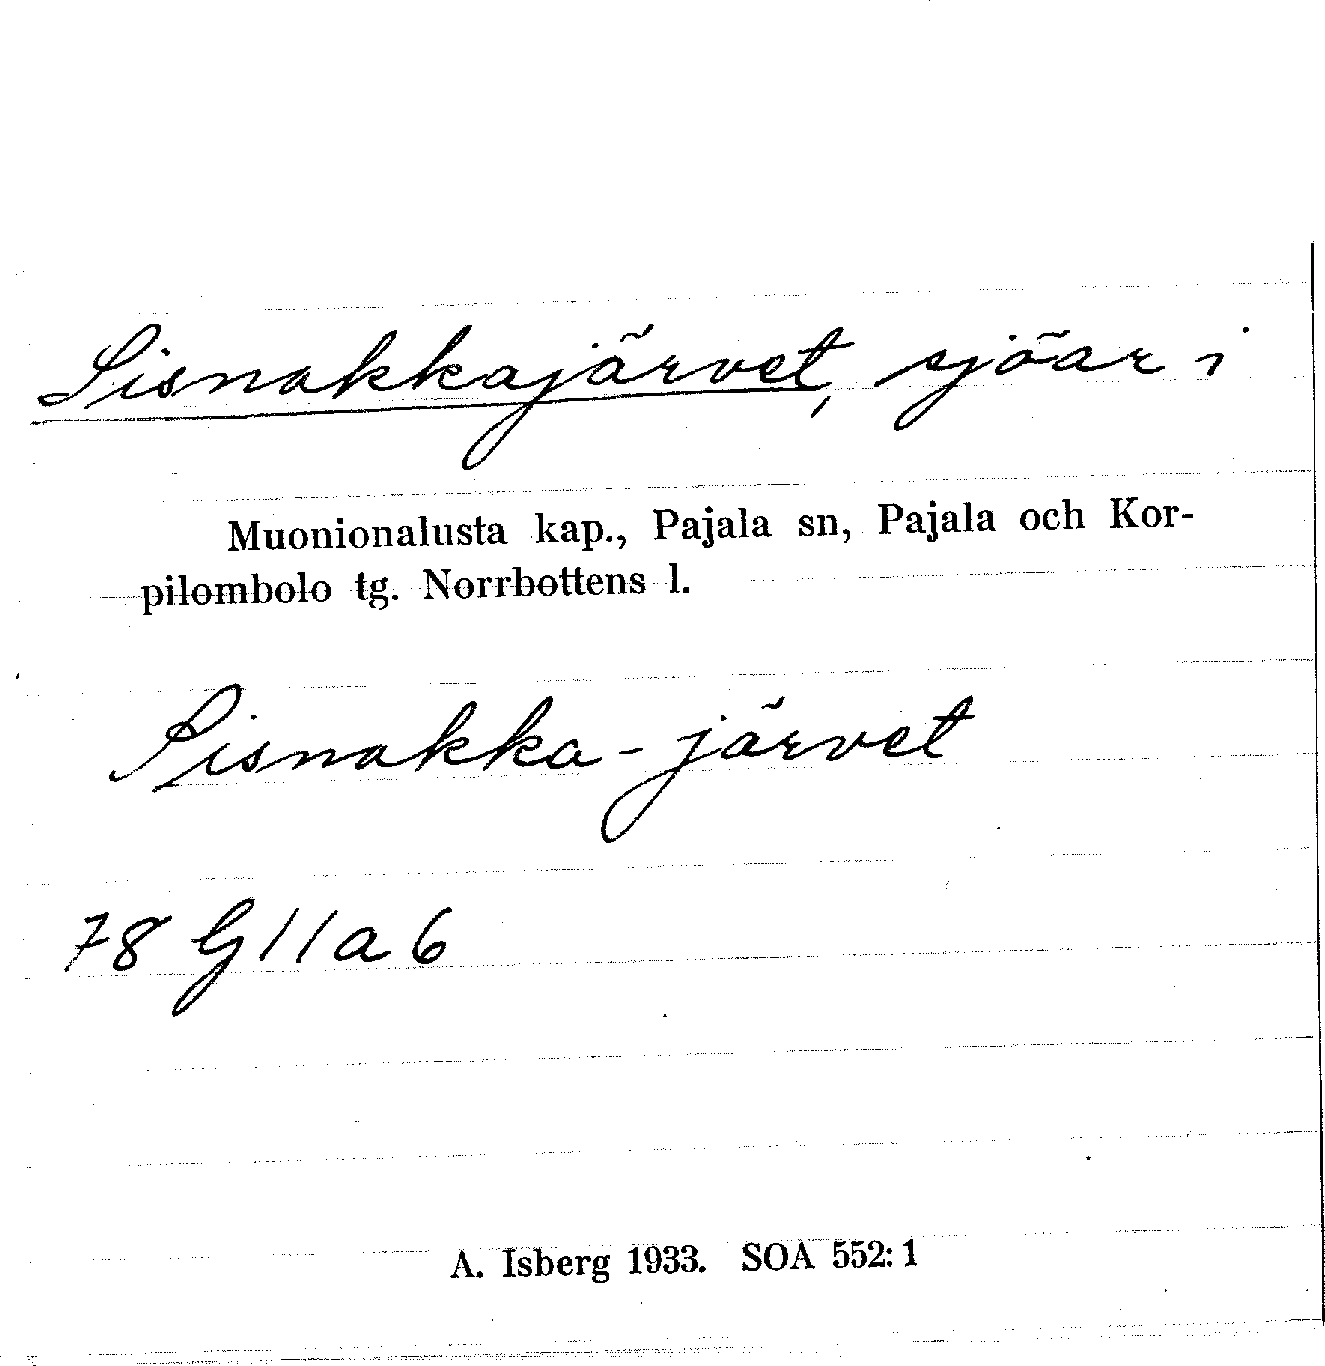 Sisnakkajärvet, sjöar i
Muonionalusta kap., Pajala sn, Pajala och Kor-
pilombolo tg. Norrbottens l.
Sisnakka-järvet
78 G 11 a 6
A. Isberg 1933. SOA 552:1